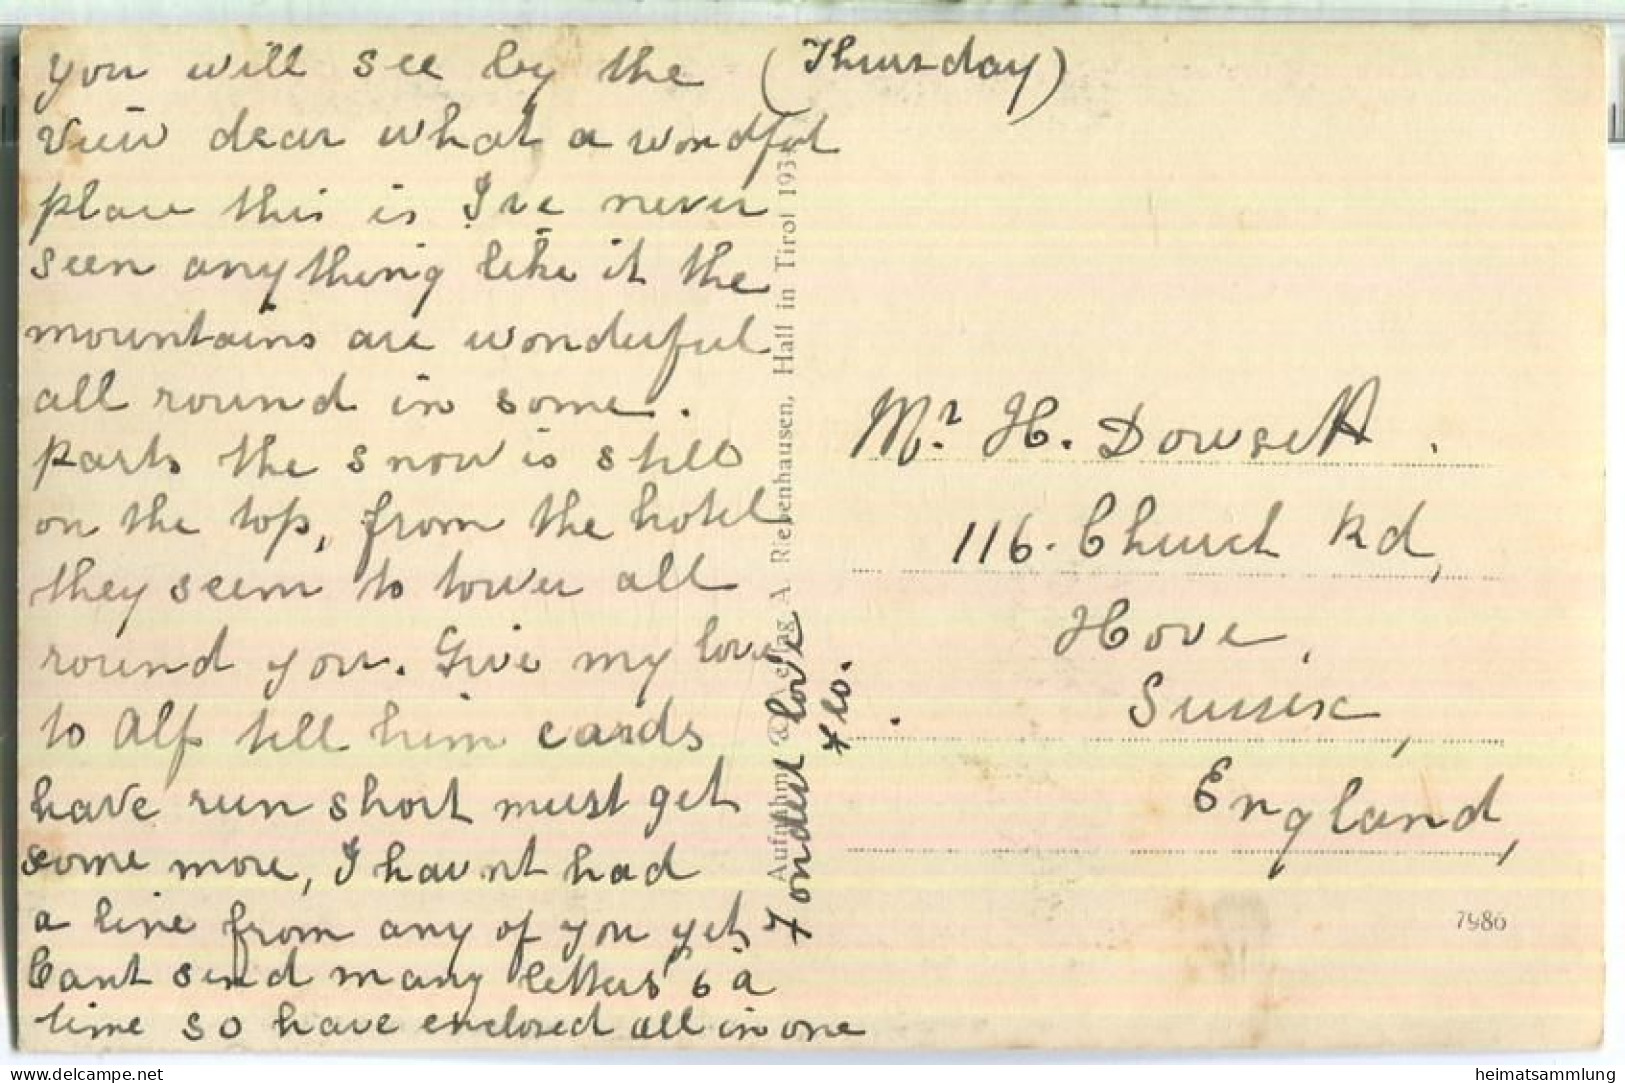 (Thursday)
you will see by the
view dear what a wondful
place this is I've never
seen anything like it the
mountains are wonderful
all round in some.
parts the snow is still
on the top, from the hotel
they seem to tower all
round you. Give my love
to Alf tell him cards
have run short must get
some more, I havnt had
a line from any of you yet,
Cant send many letters 6 a
time so have enclosed all in one
Fondest love
Flo.
A Riepenhausen, Hall in Tirol 193
Mr. H. Dowsett.
116. Church Rd,
Hove,
Sussex,
England,
7986
www.delcampe.net
heimatsammlung